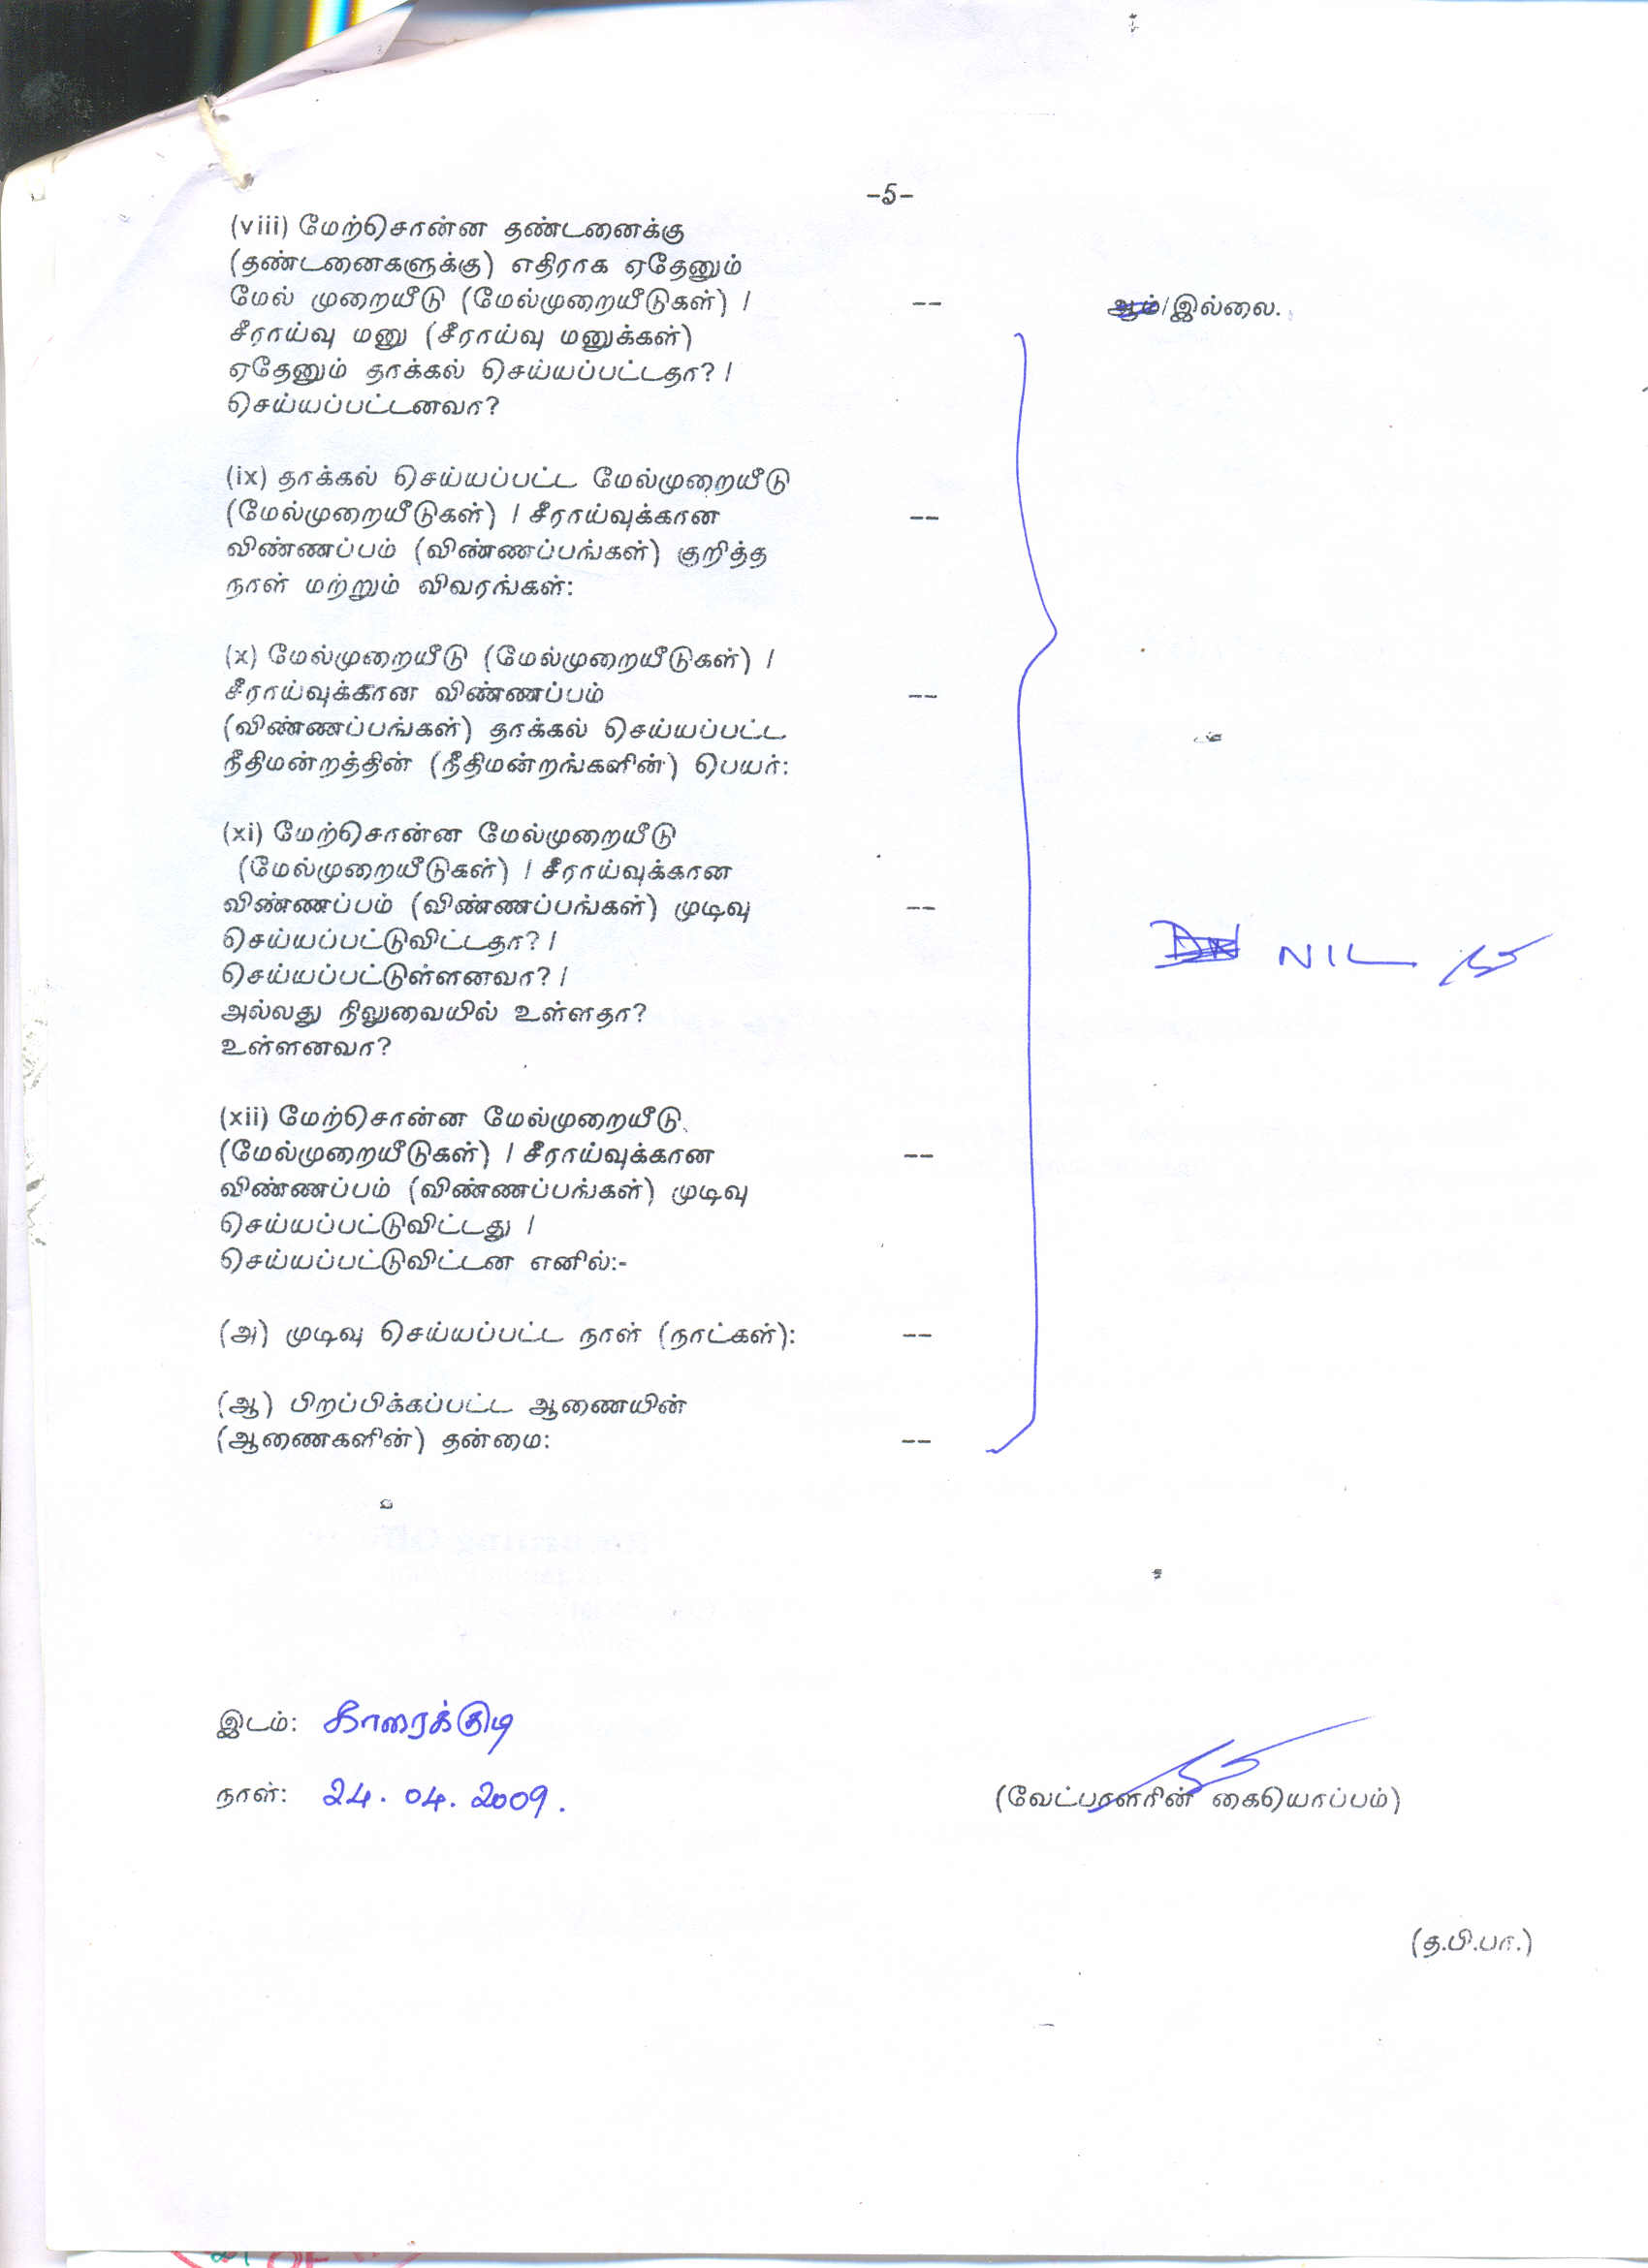 -5-
(viii) மேற்சொன்ன தண்டனைக்கு
(தண்டனைகளுக்கு) எதிராக ஏதேனும்
மேல் முறையீடு (மேல்முறையீடுகள்) / -- ஆம்/இல்லை.
சீராய்வு மனு (சீராய்வு மனுக்கள்)
ஏதேனும் தாக்கல் செய்யப்பட்டதா? /
செய்யப்பட்டனவா?
(ix) தாக்கல் செய்யப்பட்ட மேல்முறையீடு
(மேல்முறையீடுகள்) / சீராய்வுக்கான --
விண்ணப்பம் (விண்ணப்பங்கள்) குறித்த
நாள் மற்றும் விவரங்கள்:
(x) மேல்முறையீடு (மேல்முறையீடுகள்) /
சீராய்வுக்கான விண்ணப்பம் --
(விண்ணப்பங்கள்) தாக்கல் செய்யப்பட்ட
நீதிமன்றத்தின் (நீதிமன்றங்களின்) பெயர்:
(xi) மேற்சொன்ன மேல்முறையீடு
(மேல்முறையீடுகள்) / சீராய்வுக்கான
விண்ணப்பம் (விண்ணப்பங்கள்) முடிவு --
செய்யப்பட்டுவிட்டதா? /
NIL
செய்யப்பட்டுள்ளனவா? /
அல்லது நிலுவையில் உள்ளதா?
உள்ளனவா?
(xii) மேற்சொன்ன மேல்முறையீடு
(மேல்முறையீடுகள்) / சீராய்வுக்கான --
விண்ணப்பம் (விண்ணப்பங்கள்) முடிவு
செய்யப்பட்டுவிட்டது /
செய்யப்பட்டுவிட்டன எனில்:-
(அ) முடிவு செய்யப்பட்ட நாள் (நாட்கள்): --
(ஆ) பிறப்பிக்கப்பட்ட ஆணையின்
(ஆணைகளின்) தன்மை: --
இடம்: காரைக்குடி
நாள்: 24.04.2009.
(வேட்பாளரின் கையொப்பம்)
(த.பி.பா.)